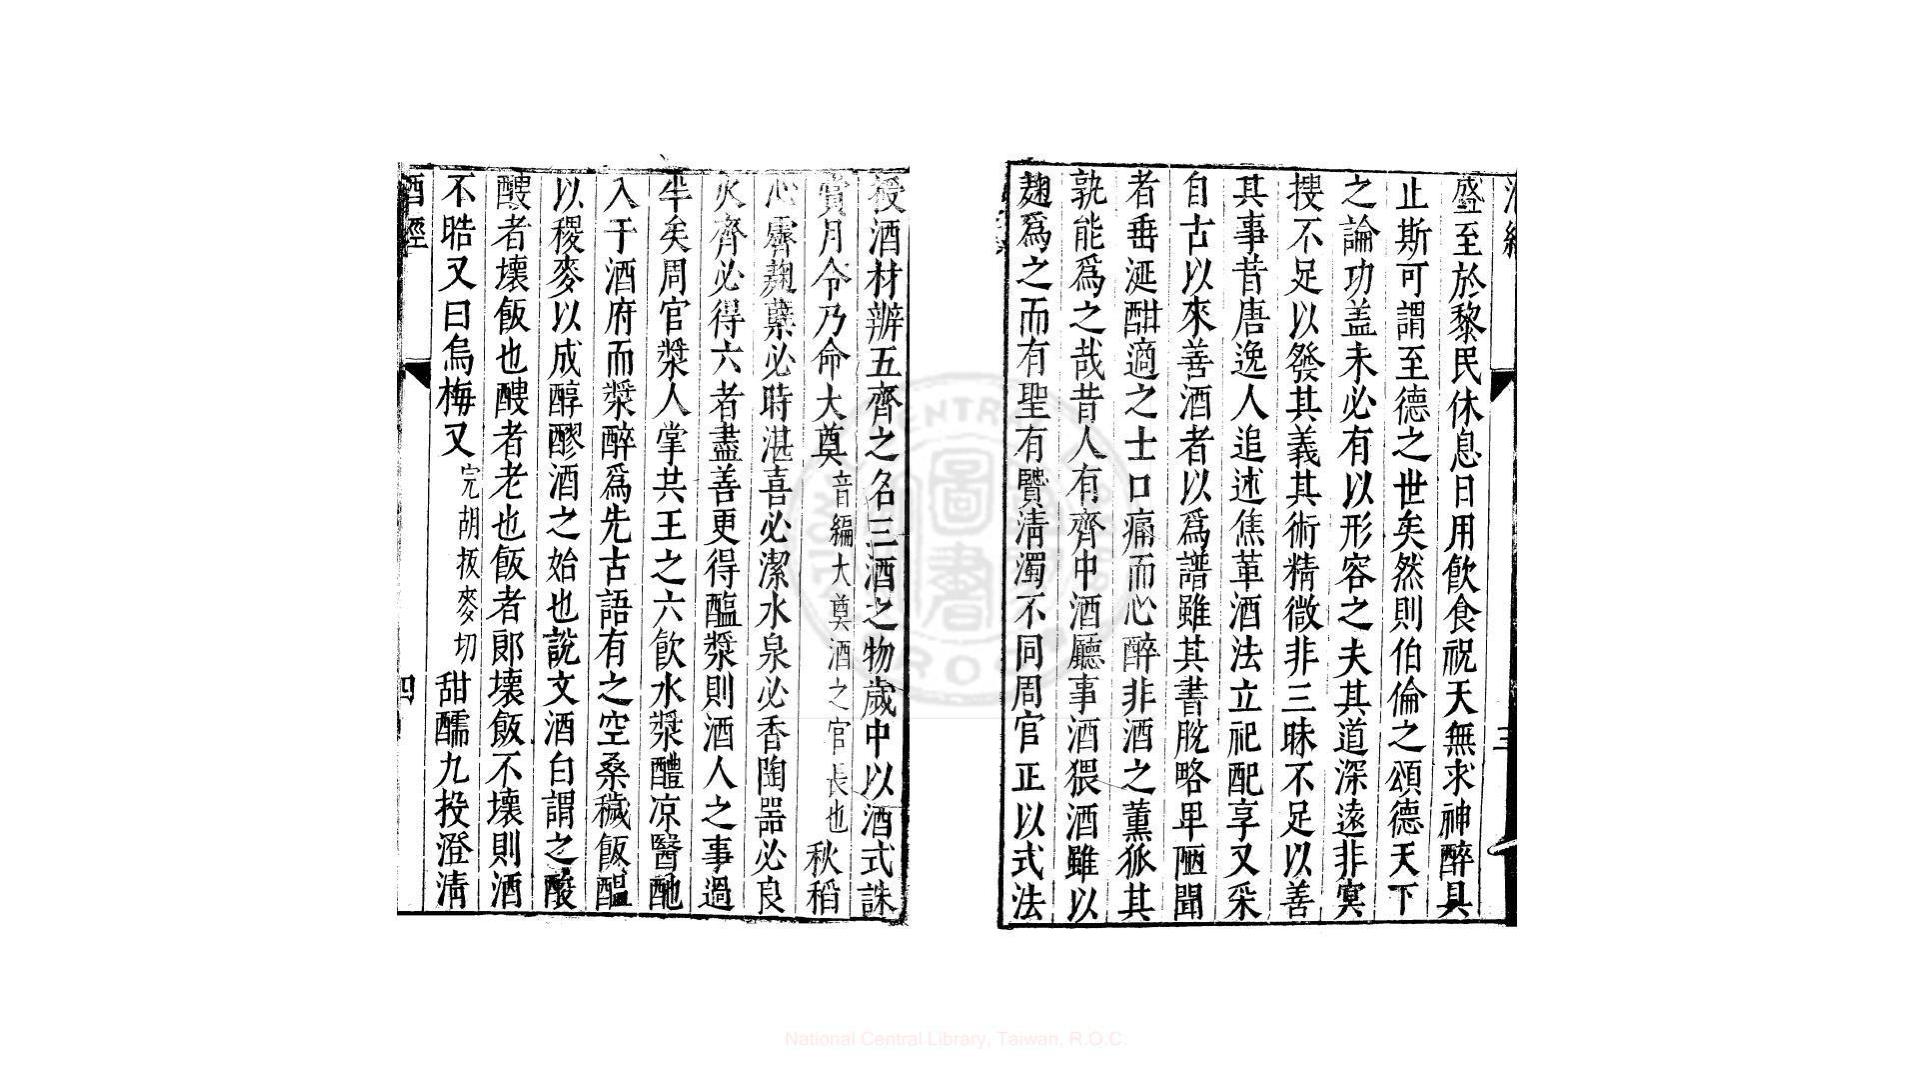 盛至於黎民休息日用飲食祝天無求神醉具
止斯可謂至德之世矣然則伯倫之頌德天下
之論功盖未必有以形容之夫其道深遠非冥
搜不足以發其義其術精微非三昧不足以善
其事昔唐逸人追述焦革酒法立祀配享又采
自古以來善酒者以爲譜雖其書脫略卑陋聞
者垂涎酣適之士口痛而心醉非酒之董狐其
孰能爲之哉昔人有齊中酒廳事酒猥酒雖以
麹爲之而有聖有賢淸濁不同周官正以式法
授酒材辨五齊之名三酒之物歲中以酒式誅
賞月令乃命大奠音編大奠酒之官長也秋稻
心齊麹糵必時湛喜必潔水泉必香陶噐必良
火齊必得六者盡善更得醞漿則酒人之事過
半矣周官漿人掌共王之六飮水漿醴凉醫酏
入于酒府而漿醉爲先古語有之空桑穢飯醖
以稷麥以成醇醪酒之始也說文酒白謂之醙
醙者壞飯也醙者老也飯者郞壞飯不壞則酒
不晧又曰烏梅又完胡板麥切甜醹九投澄淸
酒經 四
National Central Library, Taiwan, R.O.C.